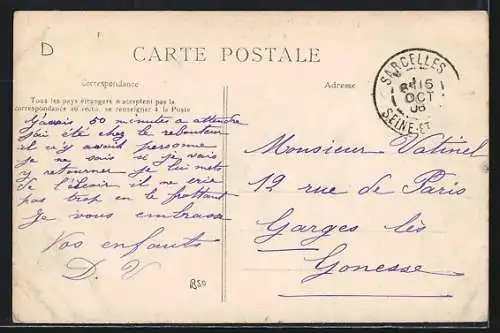 D
CARTE POSTALE
Correspondance
Adresse
Tous les pays étrangers n'acceptent pas la
correspondance au recto, se renseigner à la Poste
SARCELLES
15
OCT
SEINE-ET
J'avais 50 minutes à attendre
j'ai été chez le rebouteur
il n'y avait personne
je ne sais si je vais
y retourner je lui mets
de l' il ne crie
pas trop en le frottant
Je vous embrasse
Vos enfants
D. V
Monsieur Vatinel
12 rue de Paris
Garges lès
Gonesse
B50